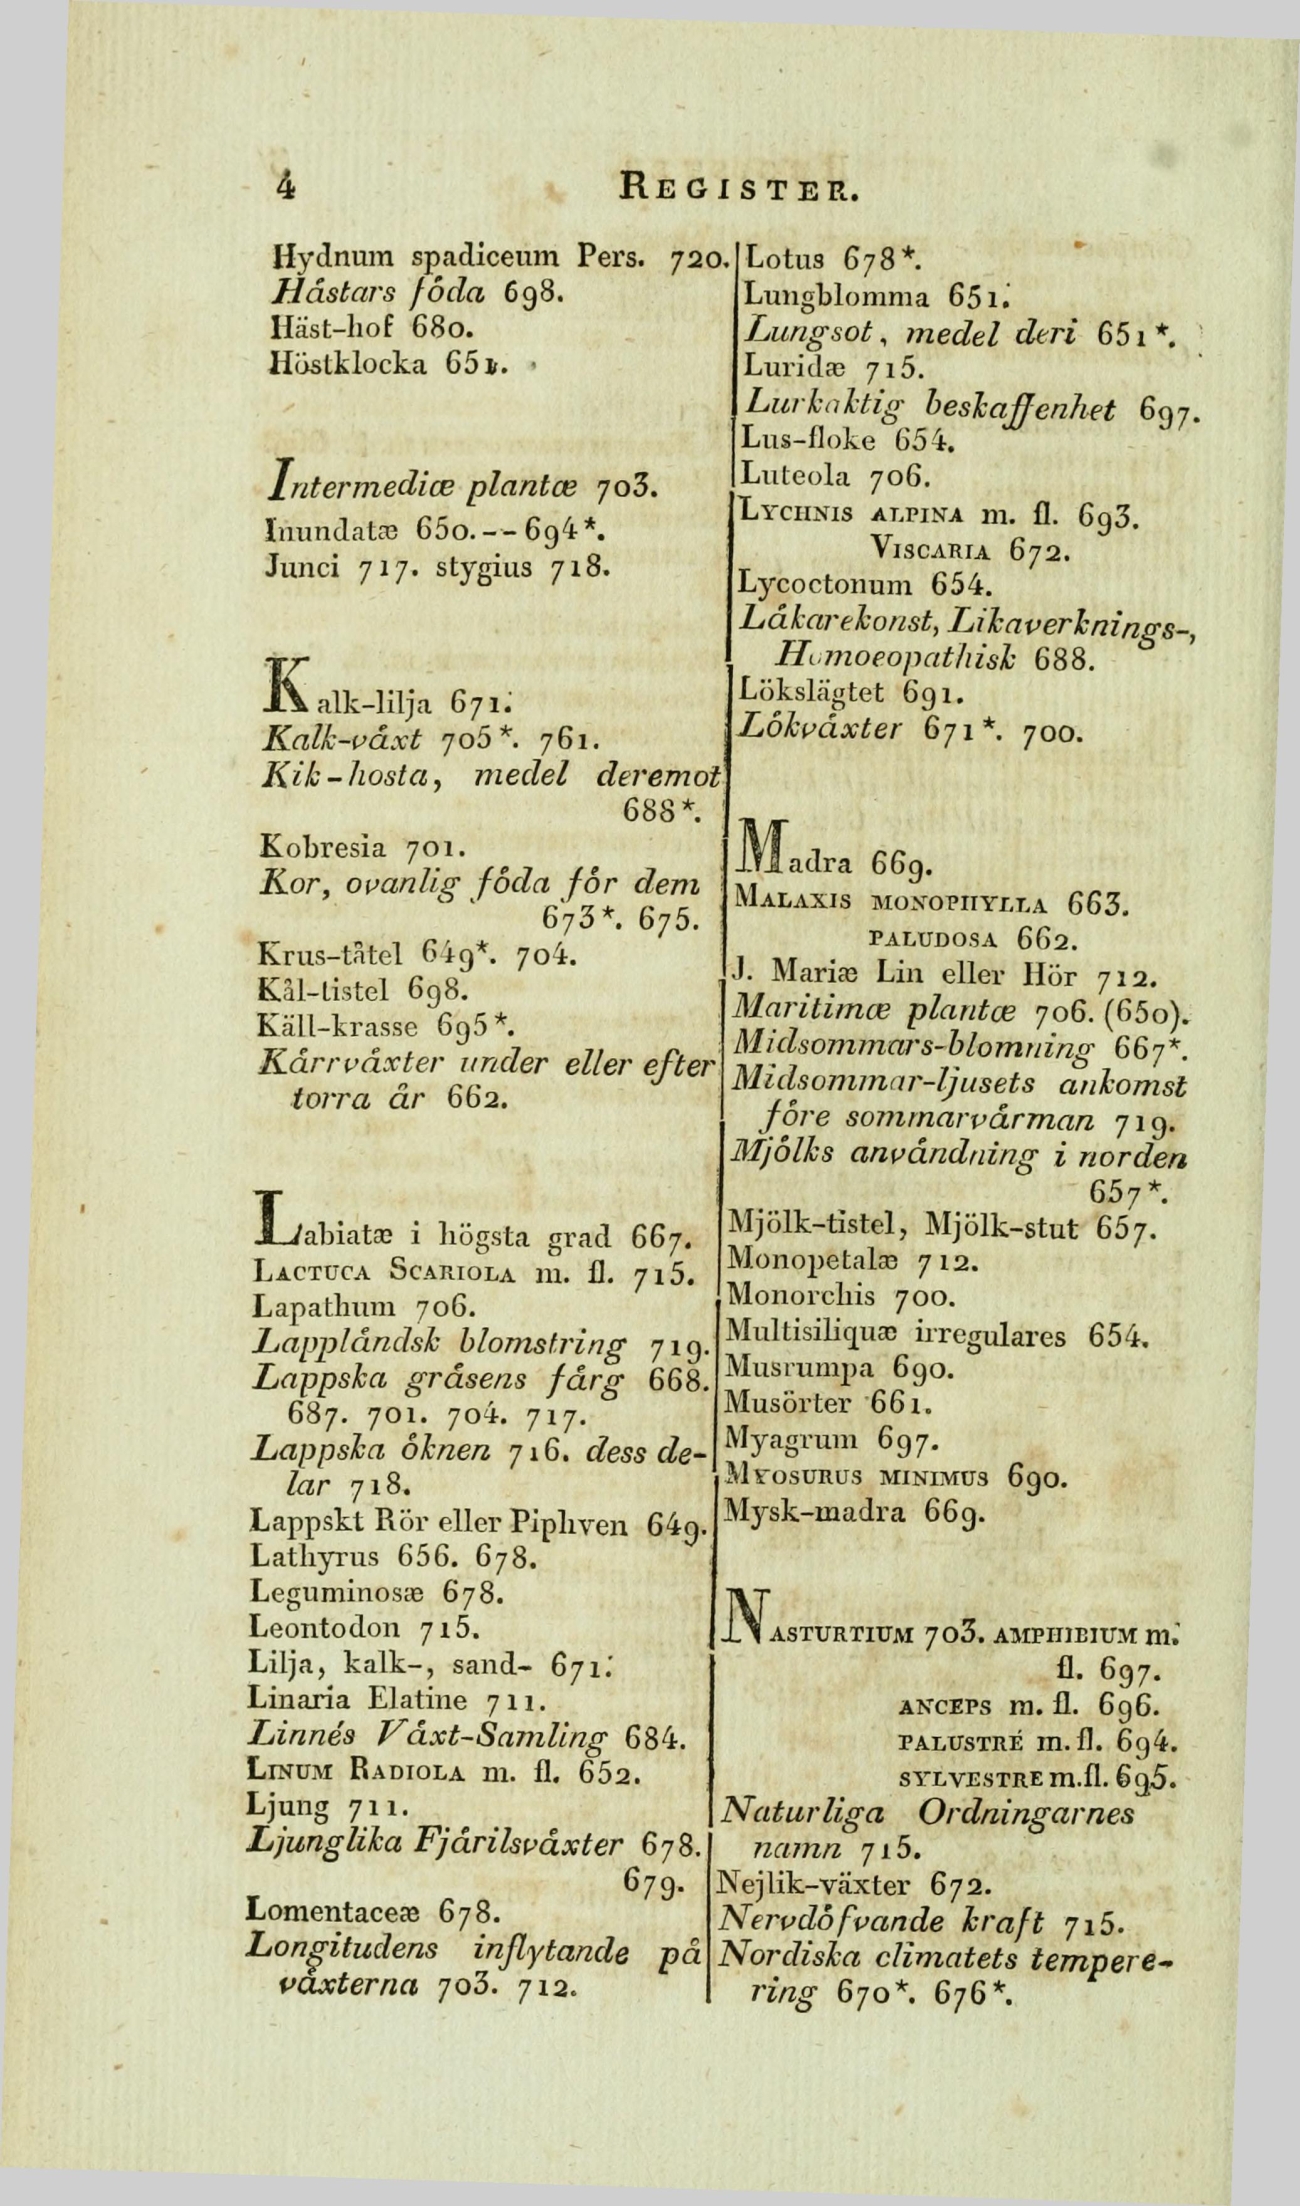 4 REGISTER.
Hydnum spadiceum Pers. 720.
Håstars fôda 698.
Häst-hof 680.
Höstklocka 651.
Intermediæ plantæ 703.
Inundatæ 650.--694*.
Junci 717. stygius 718.
Kalk-lilja 671.
Kalk-våxt 705*. 761.
Kik-hosta, medel deremot
688*.
Kobresia 701.
Kor, ovanlig fôda fôr dem
673*. 675.
Krus-tåtel 649*. 704.
Kål-tistel 698.
Käll-krasse 695*.
Kårrvåxter under eller efter
torra år 662.
Labiatæ i högsta grad 667.
LACTUCA SCARIOLA m. fl. 715.
Lapathum 706.
Lapplåndsk blomstring 719.
Lappska gråsens fårg 668.
687. 701. 704. 717.
Lappska ôknen 716. dess de-
lar 718.
Lappskt Rör eller Piphven 649.
Lathyrus 656. 678.
Leguminosæ 678.
Leontodon 715.
Lilja, kalk-, sand- 671.
Linaria Elatine 711.
Linnés Våxt-Samling 684.
LINUM RADIOLA m. fl. 652.
Ljung 711.
Ljunglika Fjårilsvåxter 678.
679.
Lomentaceæ 678.
Longitudens inflytande på
våxterna 703. 712.
Lotus 678*.
Lungblomma 651.
Lungsot, medel deri 651*.
Luridæ 715.
Lurkaktig beskaffenhet 697.
Lus-floke 654.
Luteola 706.
LYCHNIS ALPINA m. fl. 693.
VISCARIA 672.
Lycoctonum 654.
Låkarekonst, Likaverknings-,
Homoeopathisk 688.
Lökslägtet 691.
Lôkvåxter 671*. 700.
Madra 669.
MALAXIS MONOPHYLLA 663.
PALUDOSA 662.
J. Mariæ Lin eller Hör 712.
Maritimæ plantæ 706. (650).
Midsommars-blomning 667*.
Midsommar-ljusets ankomst
fôre sommarvårman 719.
Mjôlks anvåndning i norden
657*.
Mjölk-tistel, Mjölk-stut 657.
Monopetalæ 712.
Monorchis 700.
Multisiliquæ irregulares 654.
Musrumpa 690.
Musörter 661.
Myagrum 697.
MYOSURUS MINIMUS 690.
Mysk-madra 669.
NASTURTIUM 703. AMPHIBIUM m.
fl. 697.
ANCEPS m. fl. 696.
PALUSTRE m. fl. 694.
SYLVESTRE m. fl. 695.
Naturliga Ordningarnes
namn 715.
Nejlik-växter 672.
Nervdôfvande kraft 715.
Nordiska climatets tempere-
ring 670*. 676*.